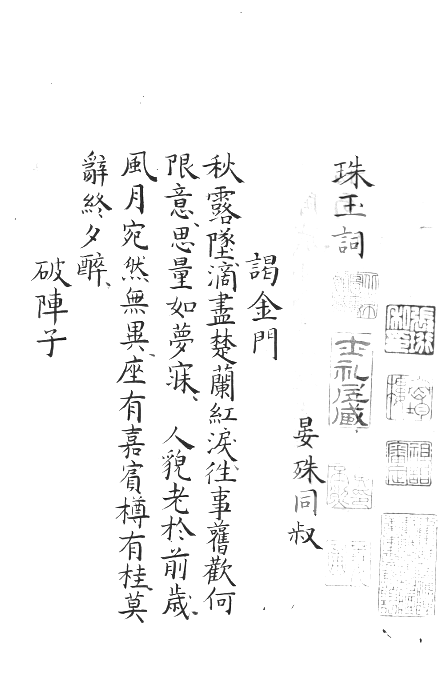 珠玉詞
士礼居藏
晏殊同叔
謁金門
秋露墜滴盡楚蘭紅淚往事舊歡何
限意、思量如夢寐、人貌老於前歲、
風月宛然無異、座有嘉賓樽有桂莫
辭終夕醉、
破陣子